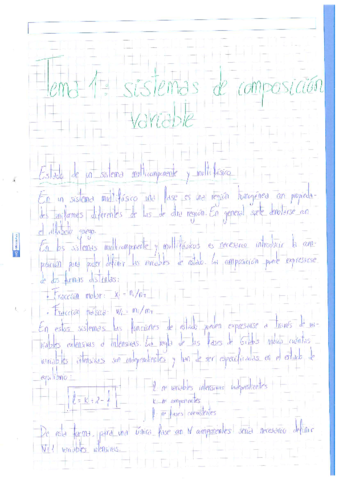 Tema 1: sistemas de composición
variable
Estado de un sistema multicomponente y multifásico
En un sistema multifásico una fase es una región homogénea con propieda-
des uniformes diferentes de las de otra región. En general suele denotarse en
el alfabeto griego.
En los sistemas multicomponentes y multifásicos es necesario introducir la com-
posición para poder definir las variables de estado. La composición puede expresarse
de dos formas distintas:
- Fracción molar:
- Fracción másica:
En estos sistemas las funciones de estado pueden expresarse a través de va-
riables extensivas e intensivas. La regla de las fases de Gibbs indica cuántas
variables intensivas son independientes y han de ser especificadas en el estado de
equilibrio:
f = variables intensivas independientes
k = componentes
= fases
De esta forma, para una única fase con N componentes será necesario definir
N+1 variables intensivas.